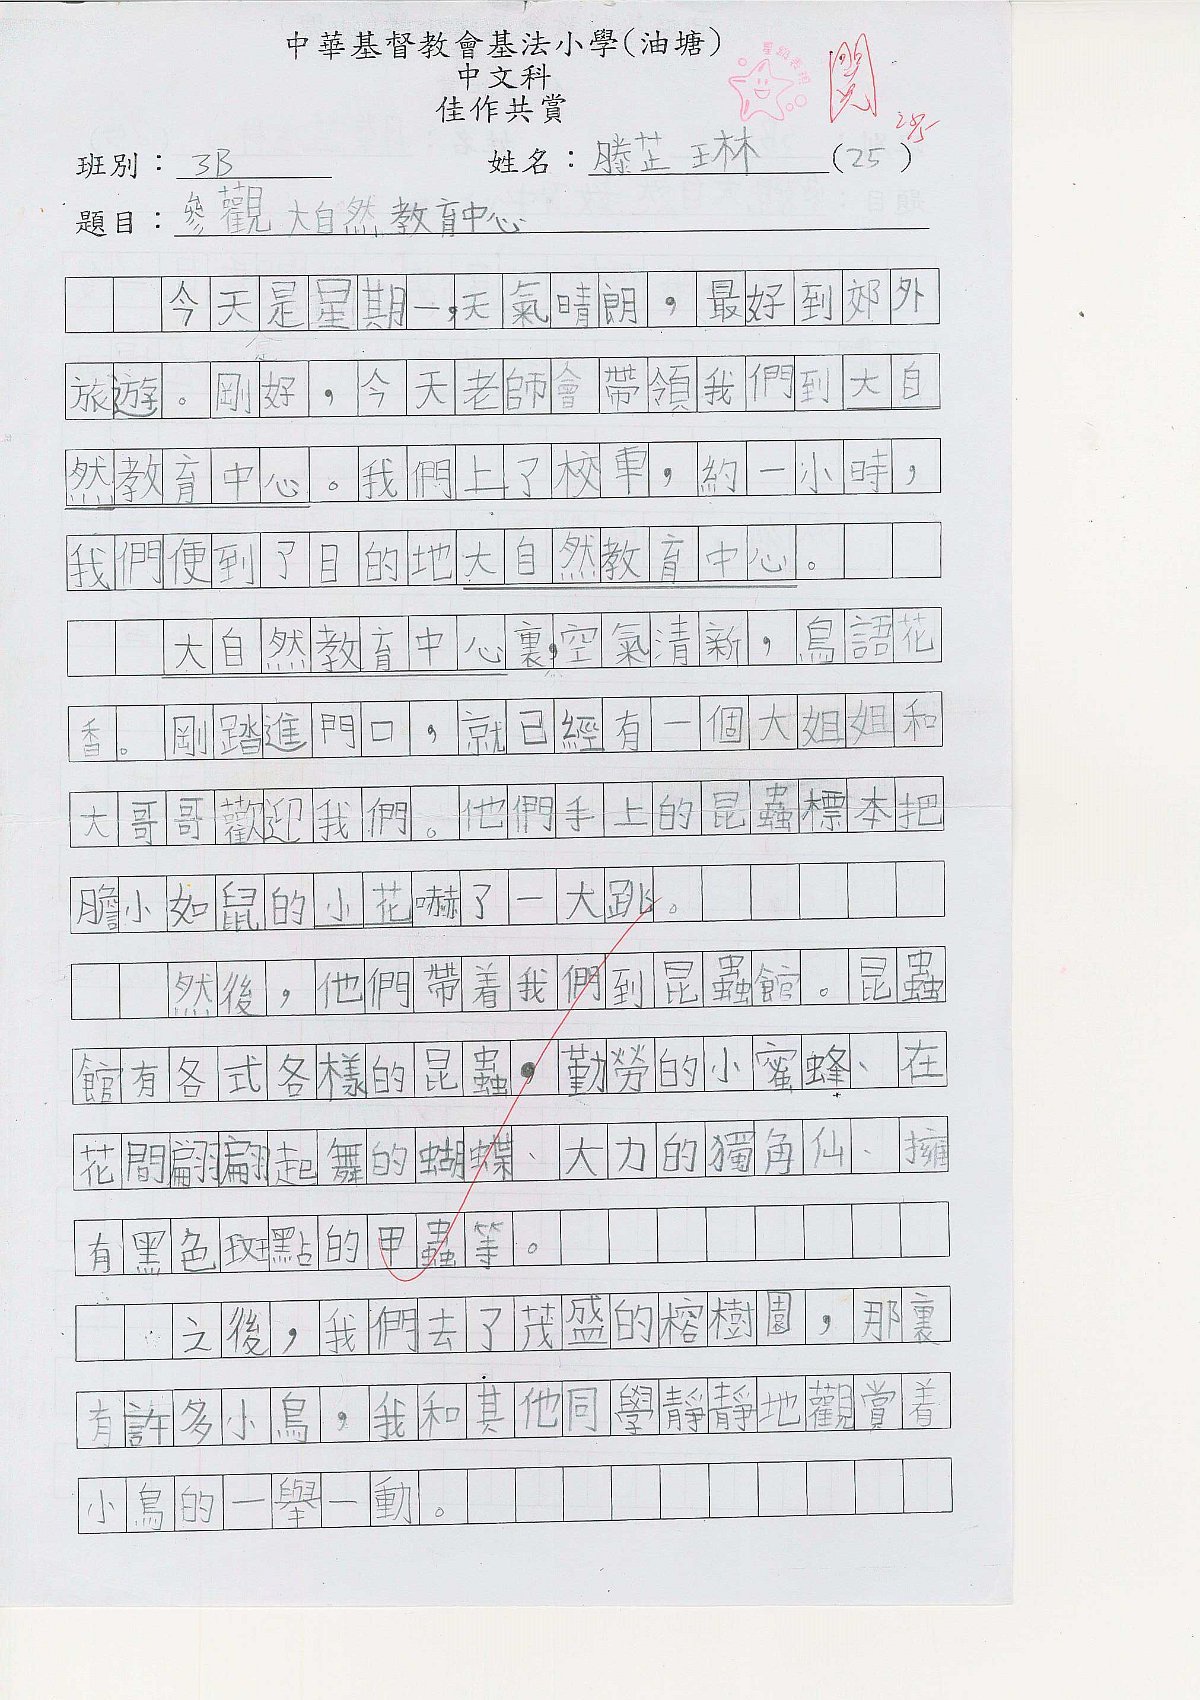 中華基督教會基法小學(油塘)
中文科
佳作共賞
閱
25/5
班別：3B 姓名：滕芷琳 (25)
題目：參觀大自然教育中心
今天是星期一，天氣晴朗，最好到郊外
旅遊。剛好，今天老師會帶領我們到大自
然教育中心。我們上了校車，約一小時，
我們便到了目的地大自然教育中心。
大自然教育中心裏，空氣清新，鳥語花
香。剛踏進門口，就已經有一個大姐姐和
大哥哥歡迎我們。他們手上的昆蟲標本把
膽小如鼠的小花嚇了一大跳。
然後，他們帶着我們到昆蟲館。昆蟲
館有各式各樣的昆蟲，勤勞的小蜜蜂、在
花間翩翩起舞的蝴蝶、大力的獨角仙、擁
有黑色斑點的甲蟲等。
之後，我們去了茂盛的榕樹園，那裏
有許多小鳥，我和其他同學靜靜地觀賞着
小鳥的一舉一動。